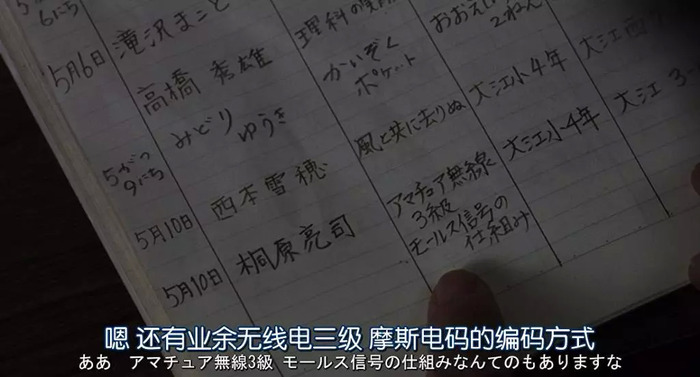 5月6日 滝沢まこと 理科の
高橋秀雄 かいぞくポケット 大江小4年
5がつ9にち みどりゆうき 風と共に去りぬ 大江小4年
5月10日 西本雪穂 アマチュア無線3級
5月10日 桐原亮司 モールス信号の仕組み
嗯 还有业余无线电三级 摩斯电码的编码方式
ああ アマチュア無線3級 モールス信号の仕組みなんてのもありますな